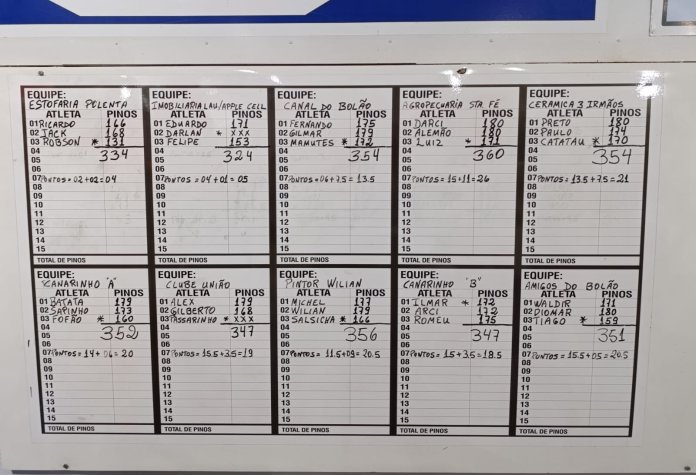 EQUIPE:
ESTOFARIA POLENTA
ATLETA PINOS
01 RICARDO 166
02 JACK 168
03 ROBSON * 131
04 334
05
06
07 PONTOS = 02+02 = 04
08
09
10
11
12
13
14
15
TOTAL DE PINOS
EQUIPE:
IMOBILIARIA LAU/APPLE CELL
ATLETA PINOS
01 EDUARDO 171
02 DARLAN * XXX
03 FELIPE 153
04 324
05
06
07 PONTOS = 04+01 = 05
08
09
10
11
12
13
14
15
TOTAL DE PINOS
EQUIPE:
CANAL DO BOLÃO
ATLETA PINOS
01 FERNANDO 175
02 GILMAR 179
03 MAMUTES * 172
04 354
05
06
07 PONTOS = 06+7.5 = 13.5
08
09
10
11
12
13
14
15
TOTAL DE PINOS
EQUIPE:
AGROPECUARIA STA. FÉ
ATLETA PINOS
01 DARCI 180
02 ALEMÃO 180
03 LUIZ * 171
04 360
05
06
07 PONTOS = 15+11 = 26
08
09
10
11
12
13
14
15
TOTAL DE PINOS
EQUIPE:
CERAMICA 3 IRMÃOS
ATLETA PINOS
01 PRETO 180
02 PAULO 174
03 CATATAU * 170
04 354
05
06
07 PONTOS = 13.5+7.5 = 21
08
09
10
11
12
13
14
15
TOTAL DE PINOS
EQUIPE:
CANARINHO "A"
ATLETA PINOS
01 BATATA 179
02 SAPINHO 173
03 FOFÃO * 160
04 352
05
06
07 PONTOS = 14+06 = 20
08
09
10
11
12
13
14
15
TOTAL DE PINOS
EQUIPE:
CLUBE UNIÃO
ATLETA PINOS
01 ALEX 179
02 GILBERTO 168
03 PASSARINHO * XXX
04 347
05
06
07 PONTOS = 15.5+3.5 = 19
08
09
10
11
12
13
14
15
TOTAL DE PINOS
EQUIPE:
PINTOR WILIAN
ATLETA PINOS
01 MICHEL 177
02 WILIAN 179
03 SALSICHA * 166
04 356
05
06
07 PONTOS = 11.5+09 = 20.5
08
09
10
11
12
13
14
15
TOTAL DE PINOS
EQUIPE:
CANARINHO "B"
ATLETA PINOS
01 ILMAR * 172
02 ARCI 172
03 ROMEU 175
04 347
05
06
07 PONTOS = 15+3.5 = 18.5
08
09
10
11
12
13
14
15
TOTAL DE PINOS
EQUIPE:
AMIGOS DO BOLÃO
ATLETA PINOS
01 WALDIR 171
02 DIOMAR 180
03 TIAGO * 159
04 351
05
06
07 PONTOS = 15.5+05 = 20.5
08
09
10
11
12
13
14
15
TOTAL DE PINOS